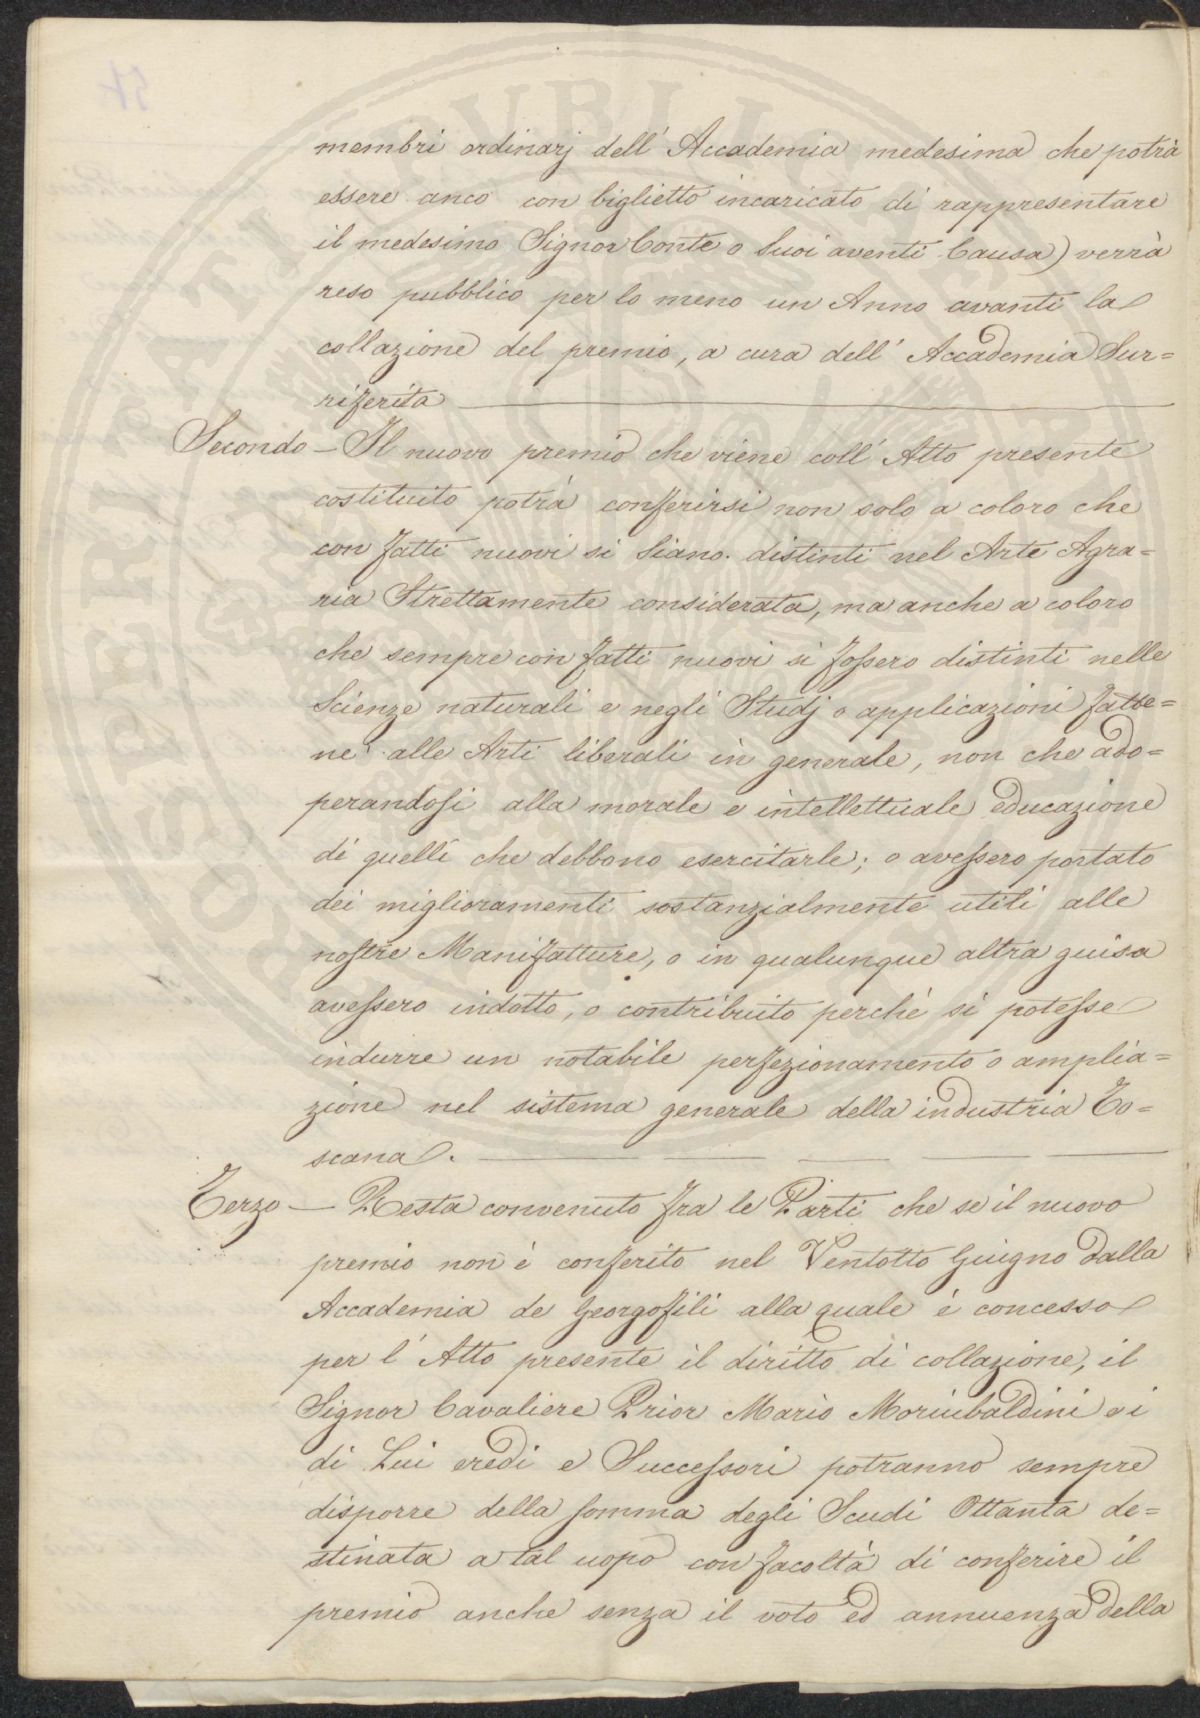 membri ordinarj dell' Accademia medesima che potrà
essere anco con biglietto incaricato di rappresentare
il medesimo Signor Conte o Suoi aventi Causa) verrà
reso pubblico per lo meno un Anno avanti la
collazione del premio, a cura dell' Accademia Sur=
riferita
Secondo – Il nuovo premio che viene coll' Atto presente
costituito potrà conferirsi non solo a coloro che
con fatti nuovi si Siano distinti nel Arte Agra=
ria Strettamente considerata, ma anche a coloro
che sempre con fatti nuovi si fossero distinti nelle
Scienze naturali e negli Studj o applicazioni fatte=
ne alle Arti liberali in generale, non che ado=
perandosi alla morale e intellettuale educazione
di quelli che debbono esercitarle; o avessero portato
dei miglioramenti sostanzialmente utili alle
nostre Manifatture, o in qualunque altra guisa
avessero indotto, o contribuito perchè si potesse
indurre un notabile perfezionamento o amplia=
zione nel sistema generale della industria To=
scana.
Terzo – Resta convenuto fra le Parti che se il nuovo
premio non è conferito nel Ventotto Giugno dalla
Accademia de Georgofili alla quale è concesso
per l' Atto presente il diritto di collazione, il
Signor Cavaliere Prior Mario Moriubaldini e i
di Lui eredi e Successori potranno sempre
disporre della somma degli Scudi Ottanta de=
stinata a tal uopo con facoltà di conferire il
premio anche senza il voto ed annuenza della